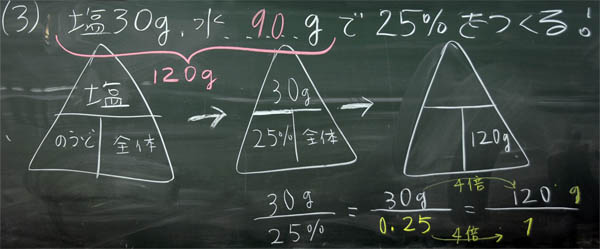 (3) 塩30g、水 90 g で 25%をつくる!
120g
塩
のうど 全体
→
30g
25% 全体
→
120g
30g/25% = 30g/0.25 = 120g/1
4倍
4倍